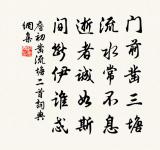 门前凿三塘
流水常不息
逝者诚如斯
间断伊谁忒
詹初凿流塘二首詞典
網集